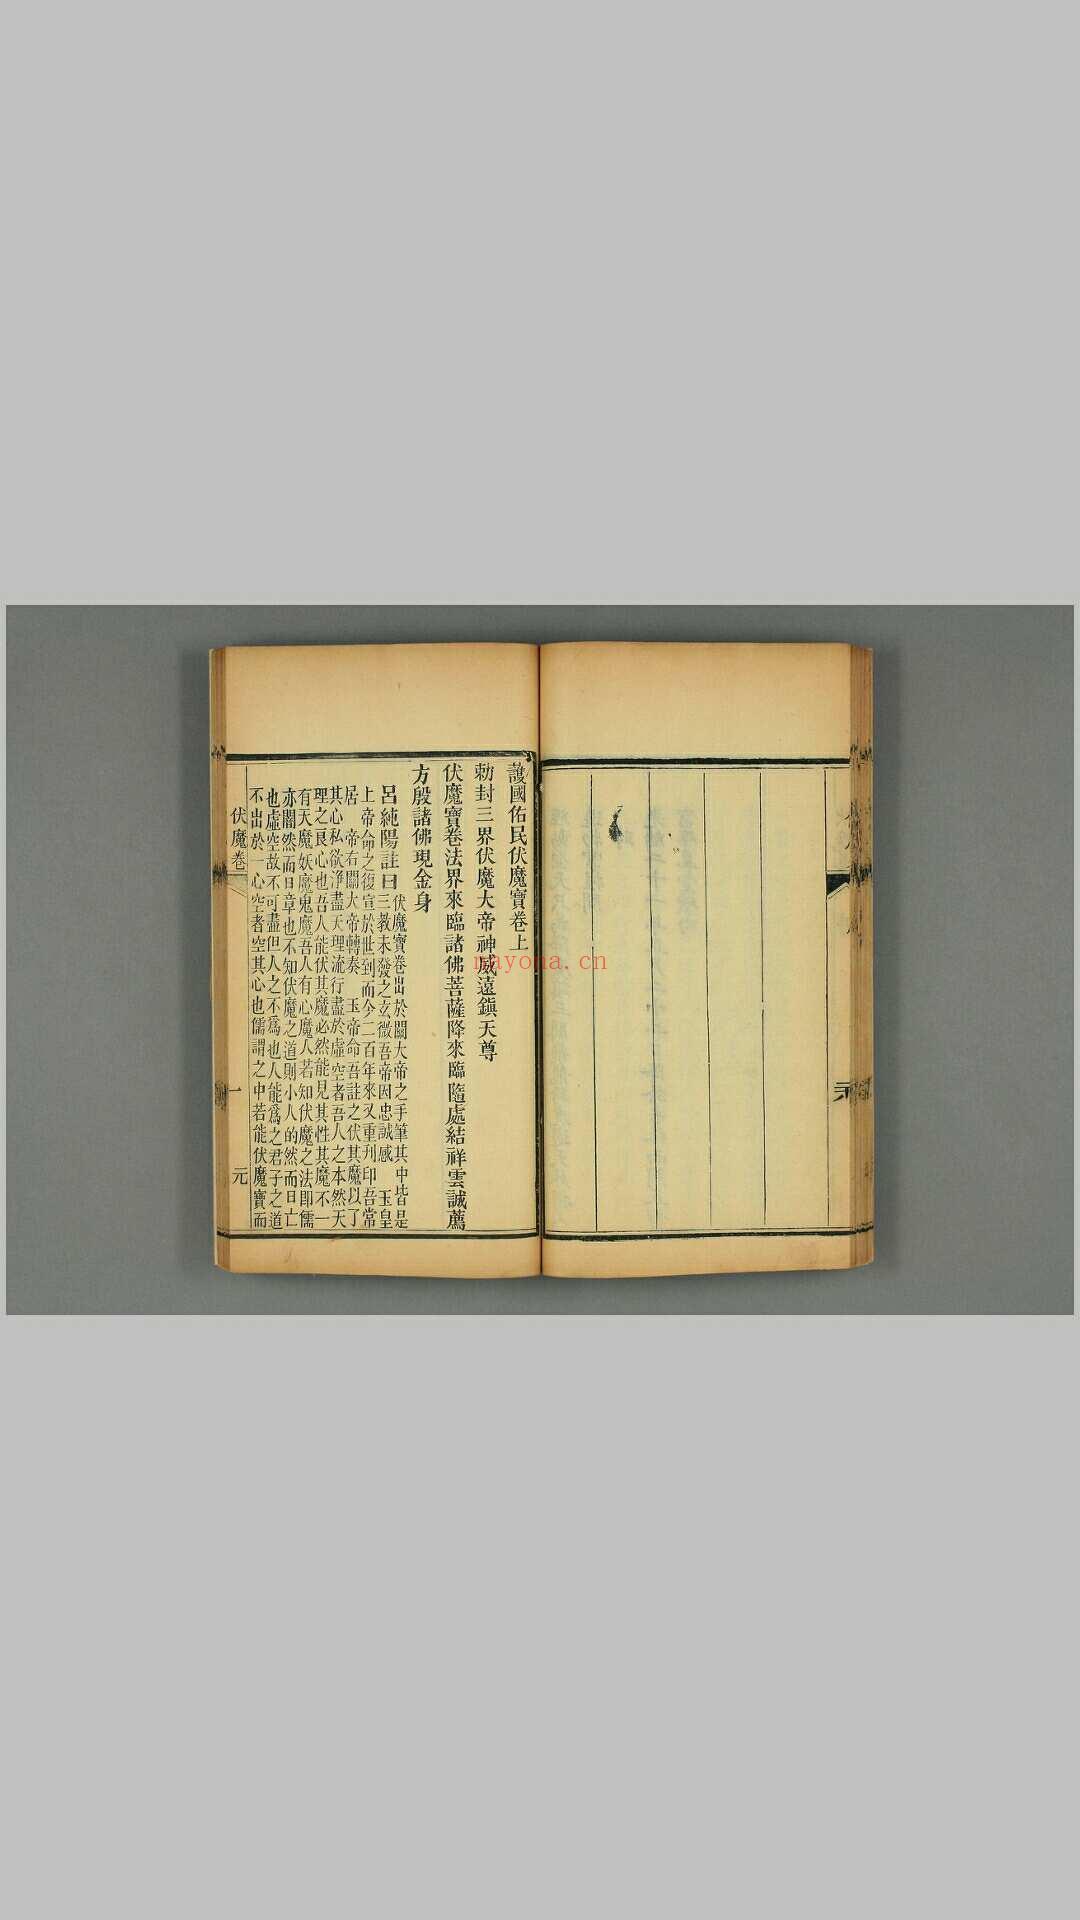 護國佑民伏魔寶卷上
勅封三界伏魔大帝神威遠鎭天尊
伏魔寶卷法界來臨諸佛菩薩降來臨隨處結祥雲誠薦
方殷諸佛現金身
呂純陽註曰
伏魔寶卷出於關大帝之手筆其中皆是
三教未發之玄微吾帝因忠誠感 玉皇
上帝命之復宣於世到而今二百年來又重刊印吾常
居 帝右關大帝轉奏 玉帝命吾註之伏其魔以了
其心私欲淨盡天理流行盡於虛空者吾人之本然天
理之良心也吾人能伏其魔必然能見其性其魔不一
有天魔妖魔鬼魔吾人有心魔人若知伏魔之法卽儒
亦闇然而日章也不知伏魔之道則小人的然而日亡
也虛空故不可盡但人之不爲也人能爲之君子之道
不出於一心空者空其心也儒謂之中若能伏魔寶而
伏魔卷
一
元
nayona.cn